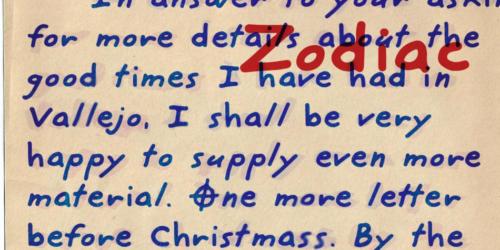 In answer to your askin
for more details about the
Zodiac
good times I have had in
Vallejo, I shall be very
happy to supply even more
material. One more letter
before Christmass. By the